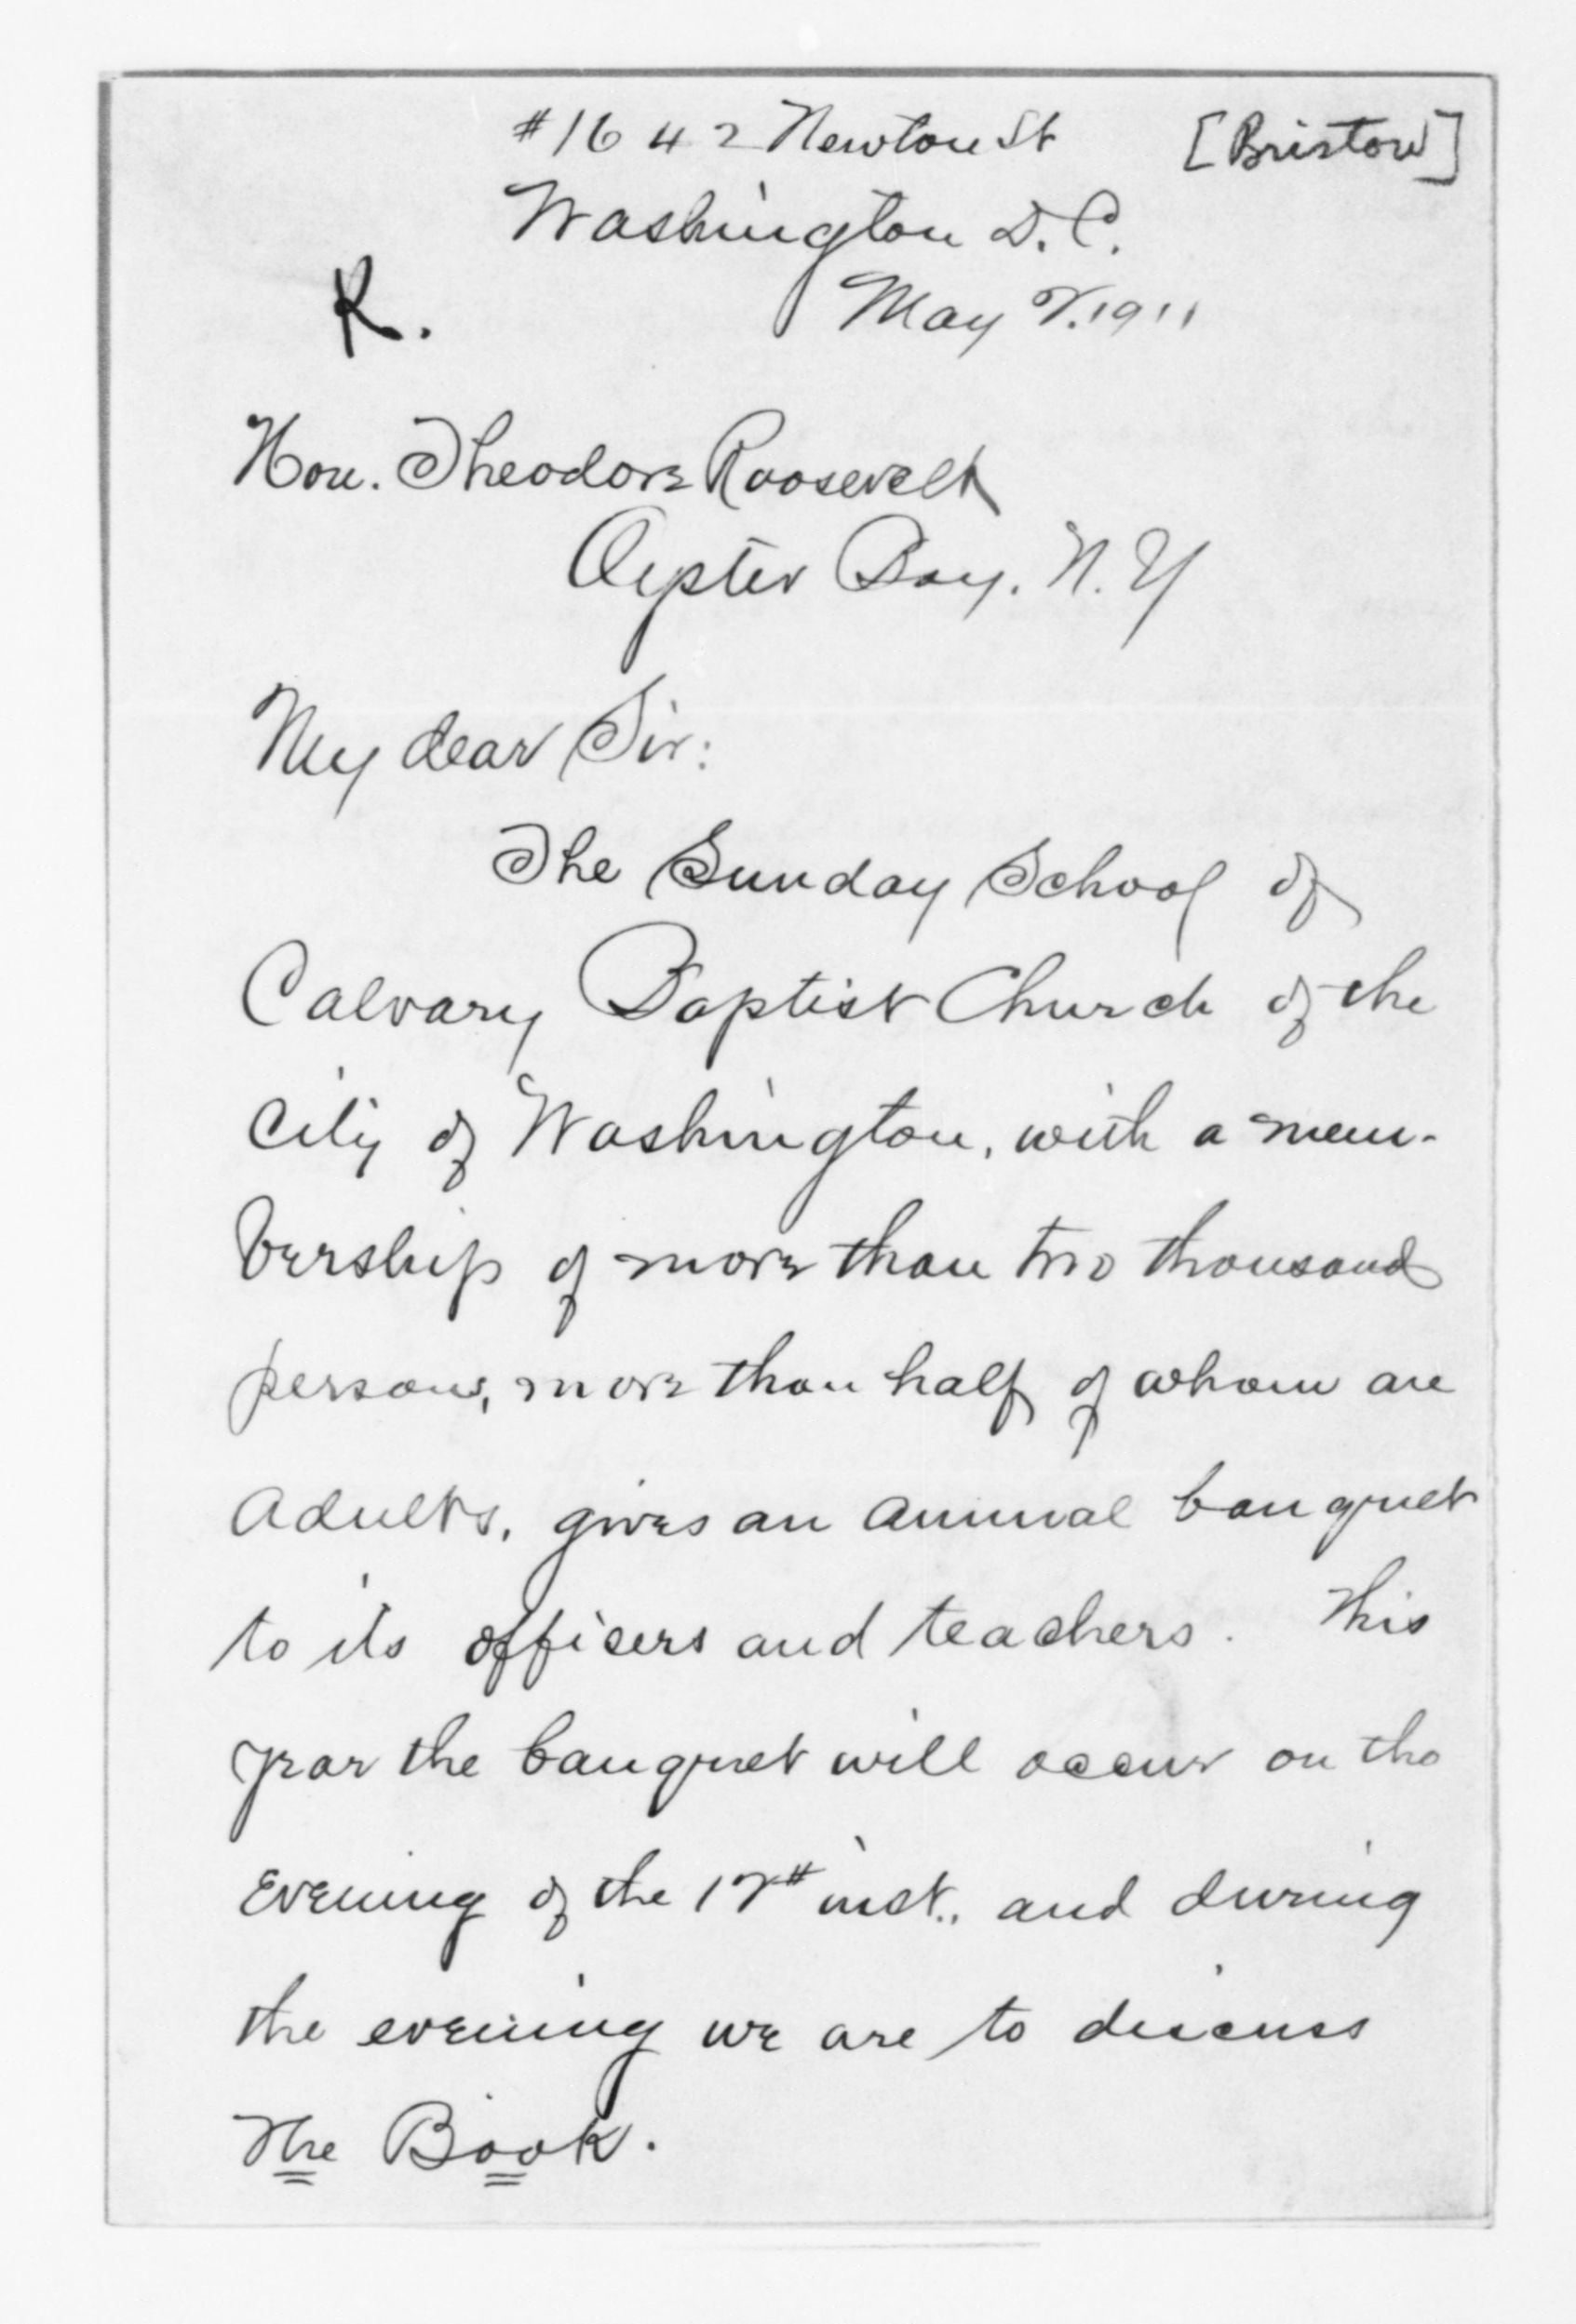 #1642 Newton St [Bristow]
Washington D.C.
K. May 7. 1911
Hon. Theodore Roosevelt
Oyster Bay. N.Y
My dear Sir:
The Sunday School of
Calvary Baptist Church of the
City of Washington, with a mem-
bership of more than two thousand
persons, more than half of whom are
adults, gives an annual banquet
to its officers and teachers. This
year the banquet will occur on the
evening of the 17th inst., and during
the evening we are to discuss
The Book.